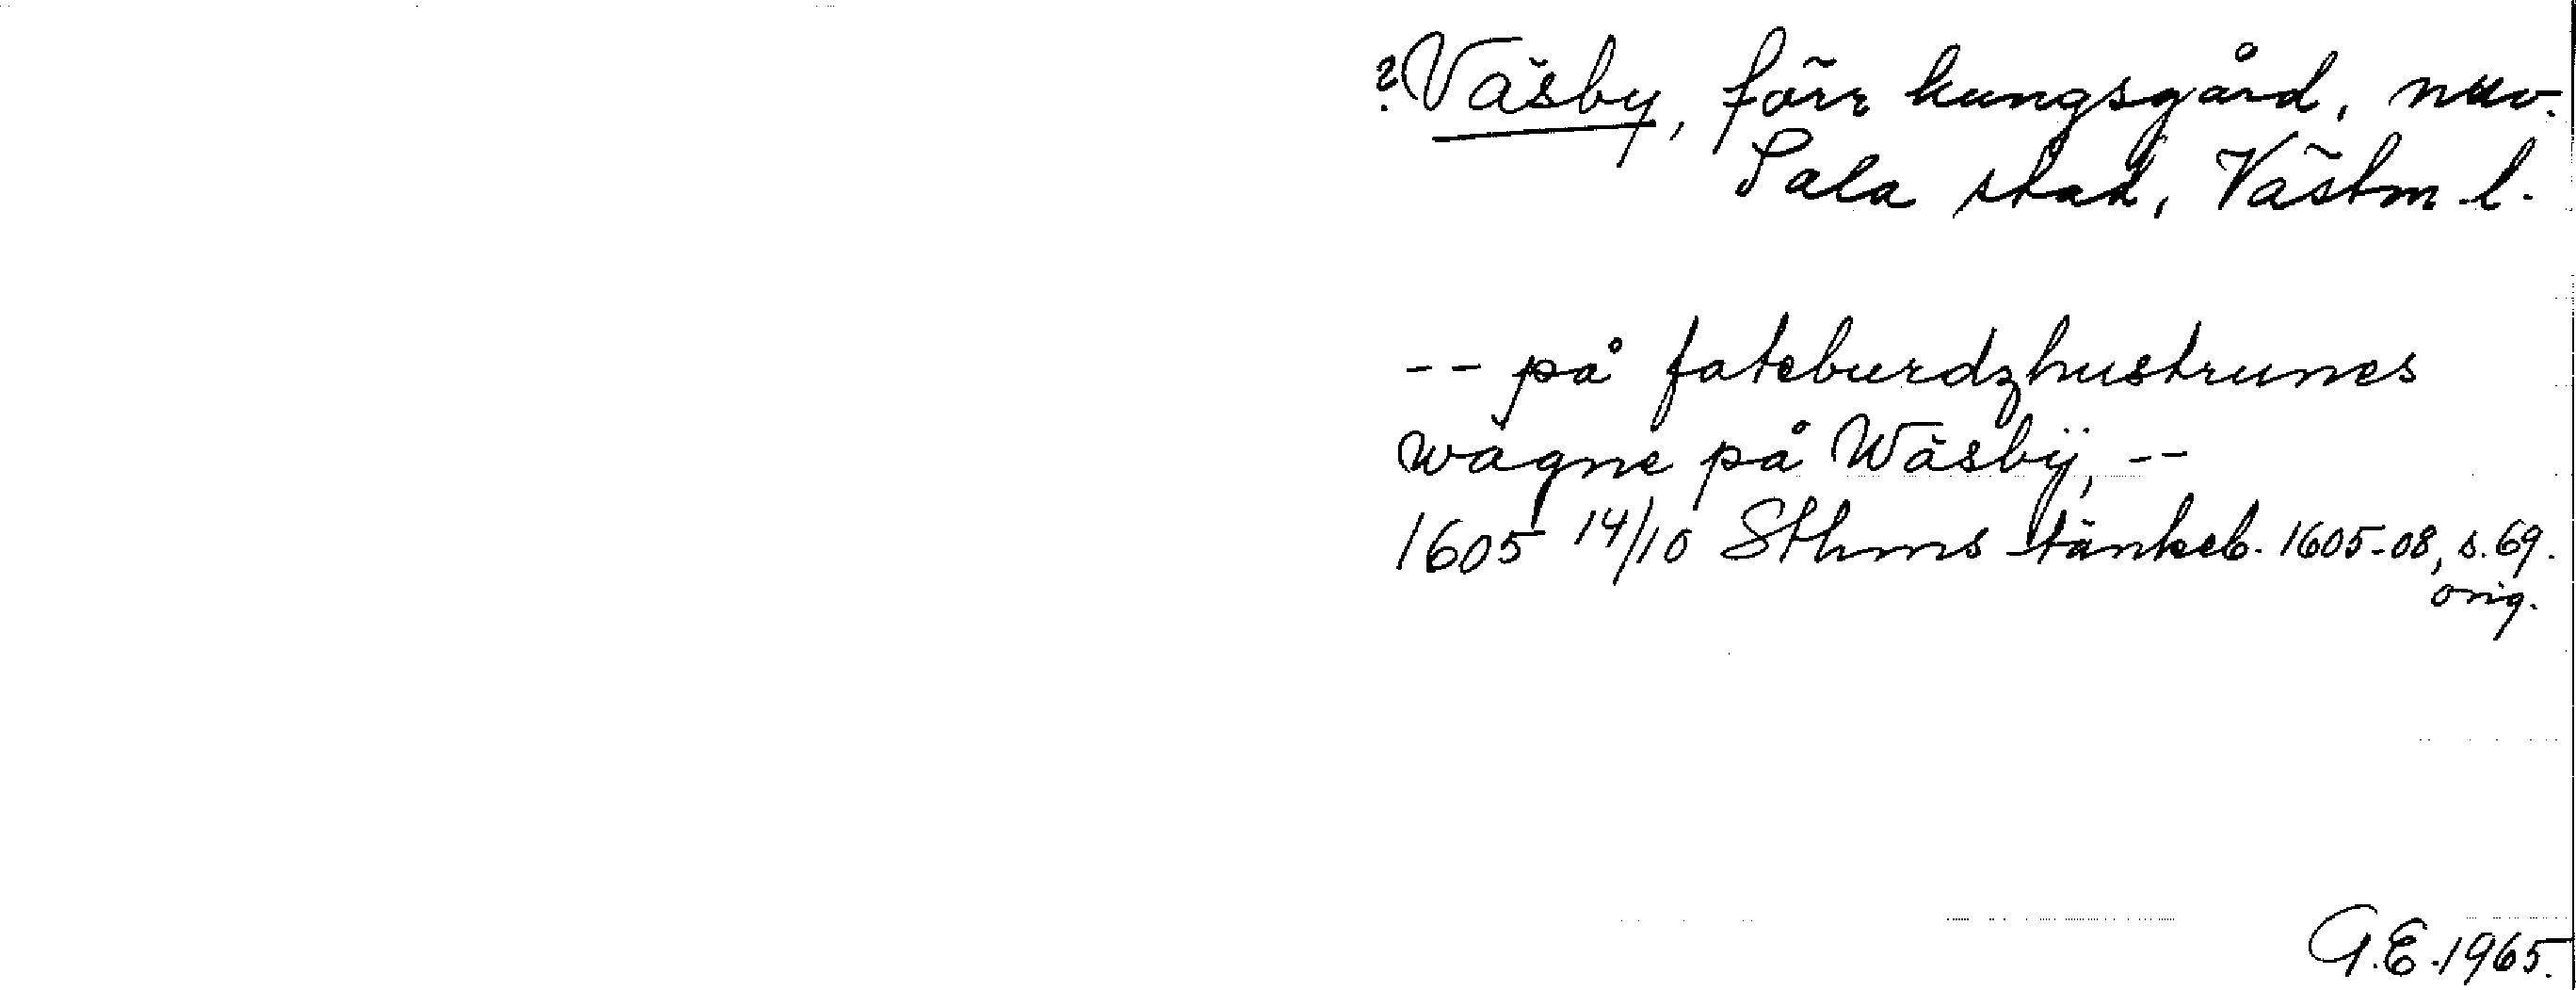 ? Väsby, förr kungsgård, nuv.
Sala stad, Västm. l.
-- på fateburdzhustrunes
wagne på Wäsbÿ, --
1605 14/10 Sthms tänkeb. 1605-08, s. 69.
orig.
G.E. 1965.